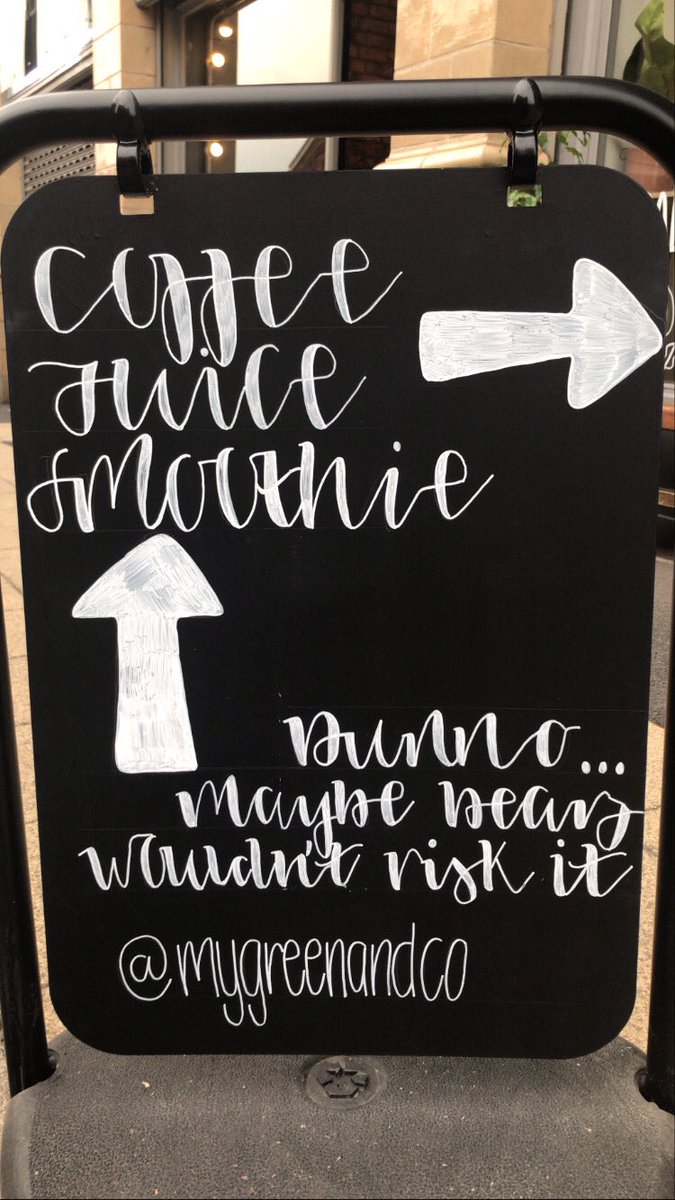 coffee
Juice
smoothie
Dunno...
maybe bears
wouldn't risk it
@mygreenandco